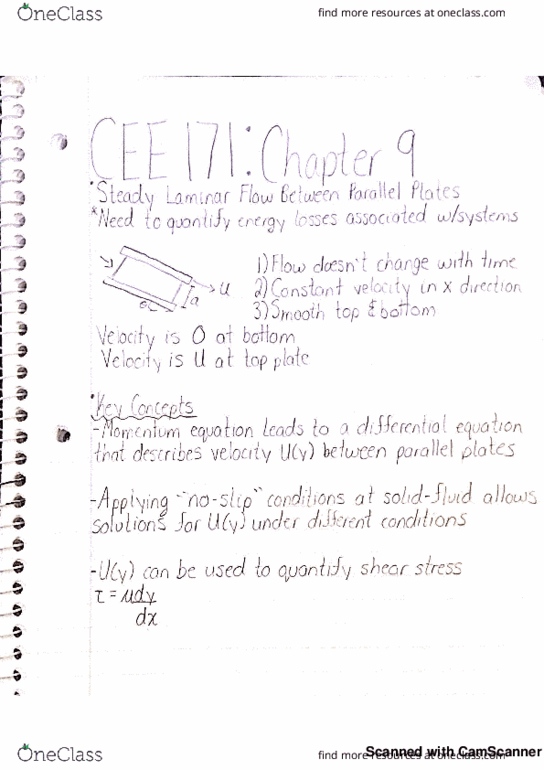 OneClass
find more resources at oneclass.com
CEE 171: Chapter 9
•Steady Laminar Flow Between Parallel Plates
*Need to quantify energy losses associated w/systems
1) Flow doesn't change with time
2) Constant velocity in x direction
3) Smooth top & bottom
U
a
θ
Velocity is 0 at bottom
Velocity is U at top plate
•Key Concepts
-Momentum equation leads to a differential equation
that describes velocity U(y) between parallel plates
-Applying "no-slip" conditions at solid-fluid allows
solutions for U(y) under different conditions
-U(y) can be used to quantify shear stress
τ = μdy
dx
OneClass
find more resources at oneclass.com
Scanned with CamScanner